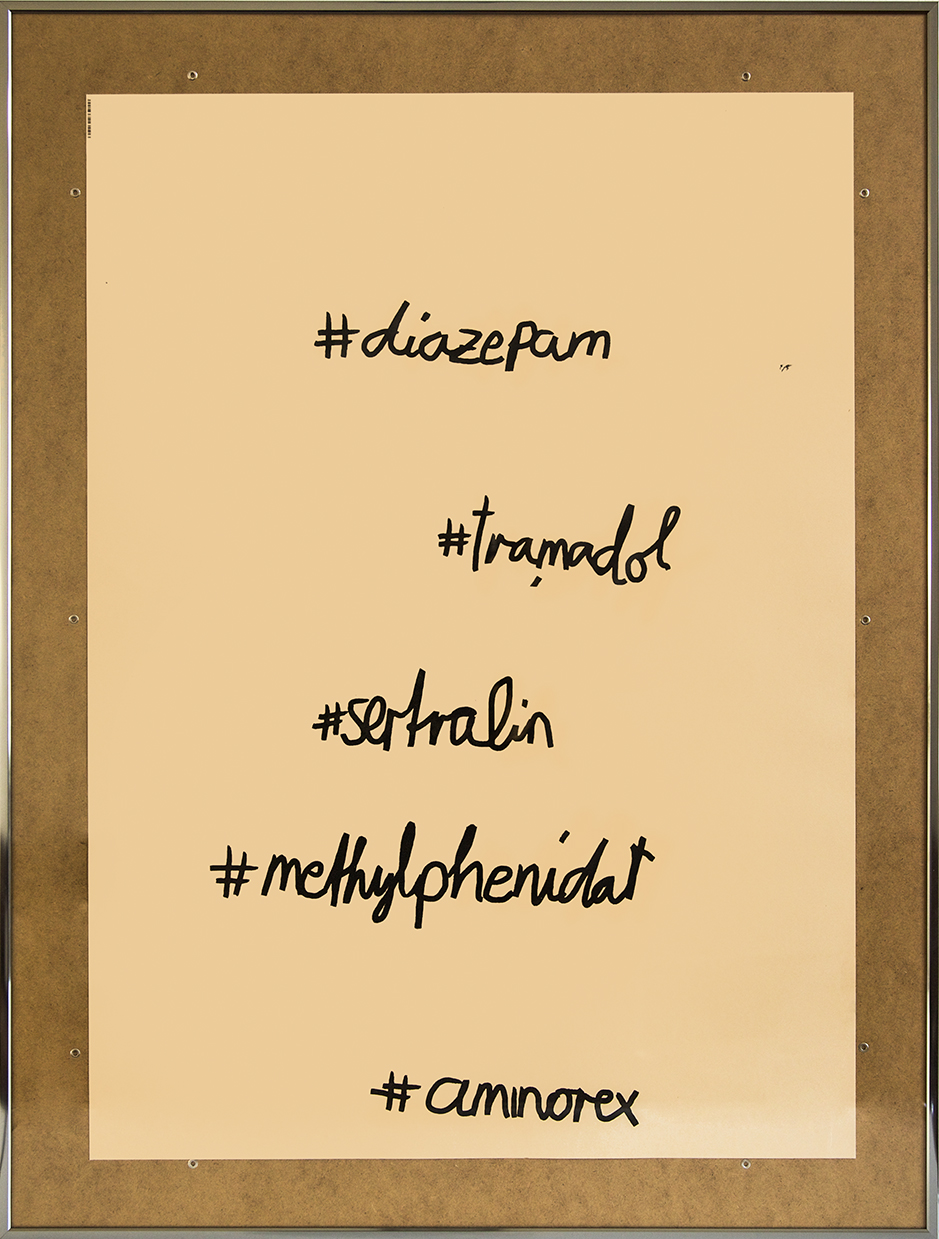 #diazepam
#tramadol
#sertralin
#methylphenidat
#aminorex